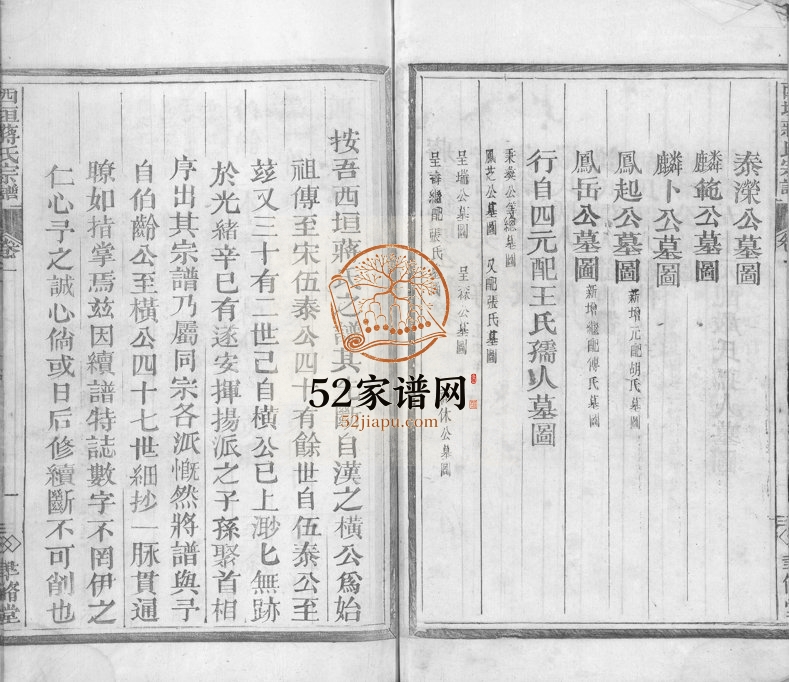 泰濚公墓圖
麟範公墓圖
麟卜公墓圖
鳳起公墓圖 新增元配胡氏墓圖
鳳岳公墓圖 新增繼配傅氏墓圖
行自四元配王氏孺人墓圖
秉燊公 總墓圖
鳳芝公墓圖 又配張氏墓圖
呈瑞公墓圖 呈 公墓圖
呈 繼配張氏 圖 休公墓圖
按吾西垣蔣 之譜其 斷自漢之橫公爲始
祖傳至宋伍泰公四十有餘世自伍泰公至
玆又三十有二世已自橫公已上渺匕無跡
於光緒辛巳有遂安揮揚派之子孫聚首相
序出其宗譜乃屬同宗各派慨然將譜與予
自伯齡公至橫公四十七世細抄一脉貫通
瞭如指掌焉玆因續譜特誌數字不罔伊之
仁心予之誠心倘或日后修續斷不可削也
西垣蔣氏宗譜
卷一
一
52家谱网
52jiapu.com